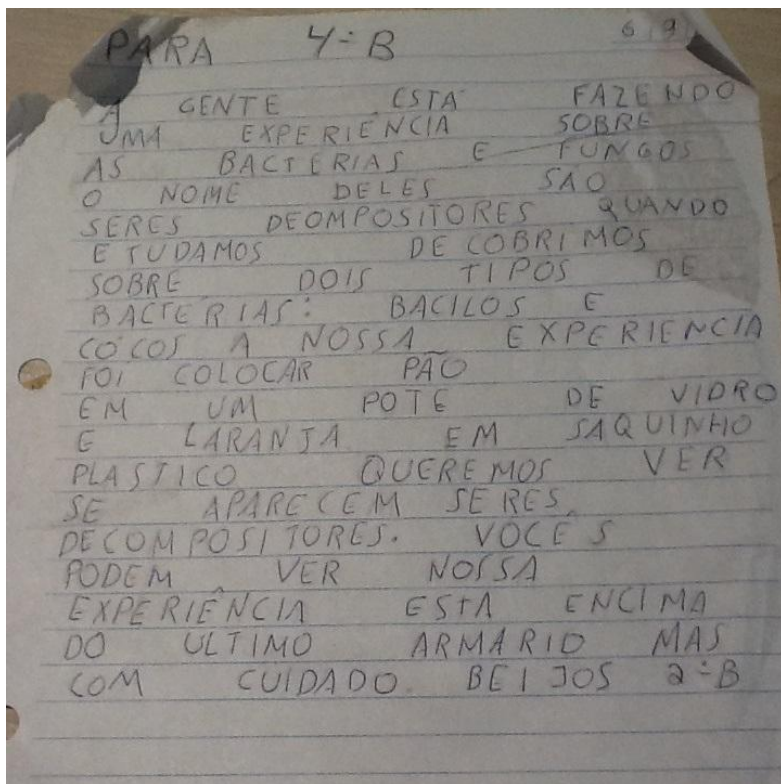 PARA 4º B 6/9/
A GENTE ESTÁ FAZENDO
UMA EXPERIÊNCIA SOBRE
AS BACTERIAS E FUNGOS
O NOME DELES SAO
SERES DEOMPOSITORES QUANDO
ETUDAMOS DECOBRIMOS
SOBRE DOIS TIPOS DE
BACTERIAS: BACILOS E
COCOS A NOSSA EXPERIENCIA
FOI COLOCAR PÃO
EM UM POTE DE VIDRO
E LARANJA EM SAQUINHO
PLASTICO QUEREMOS VER
SE APARECEM SERES
DECOMPOSITORES. VOCES
PODEM VER NOSSA
EXPERIÊNCIA ESTA ENCIMA
DO ULTIMO ARMARIO MAS
COM CUIDADO. BEIJOS 2º B